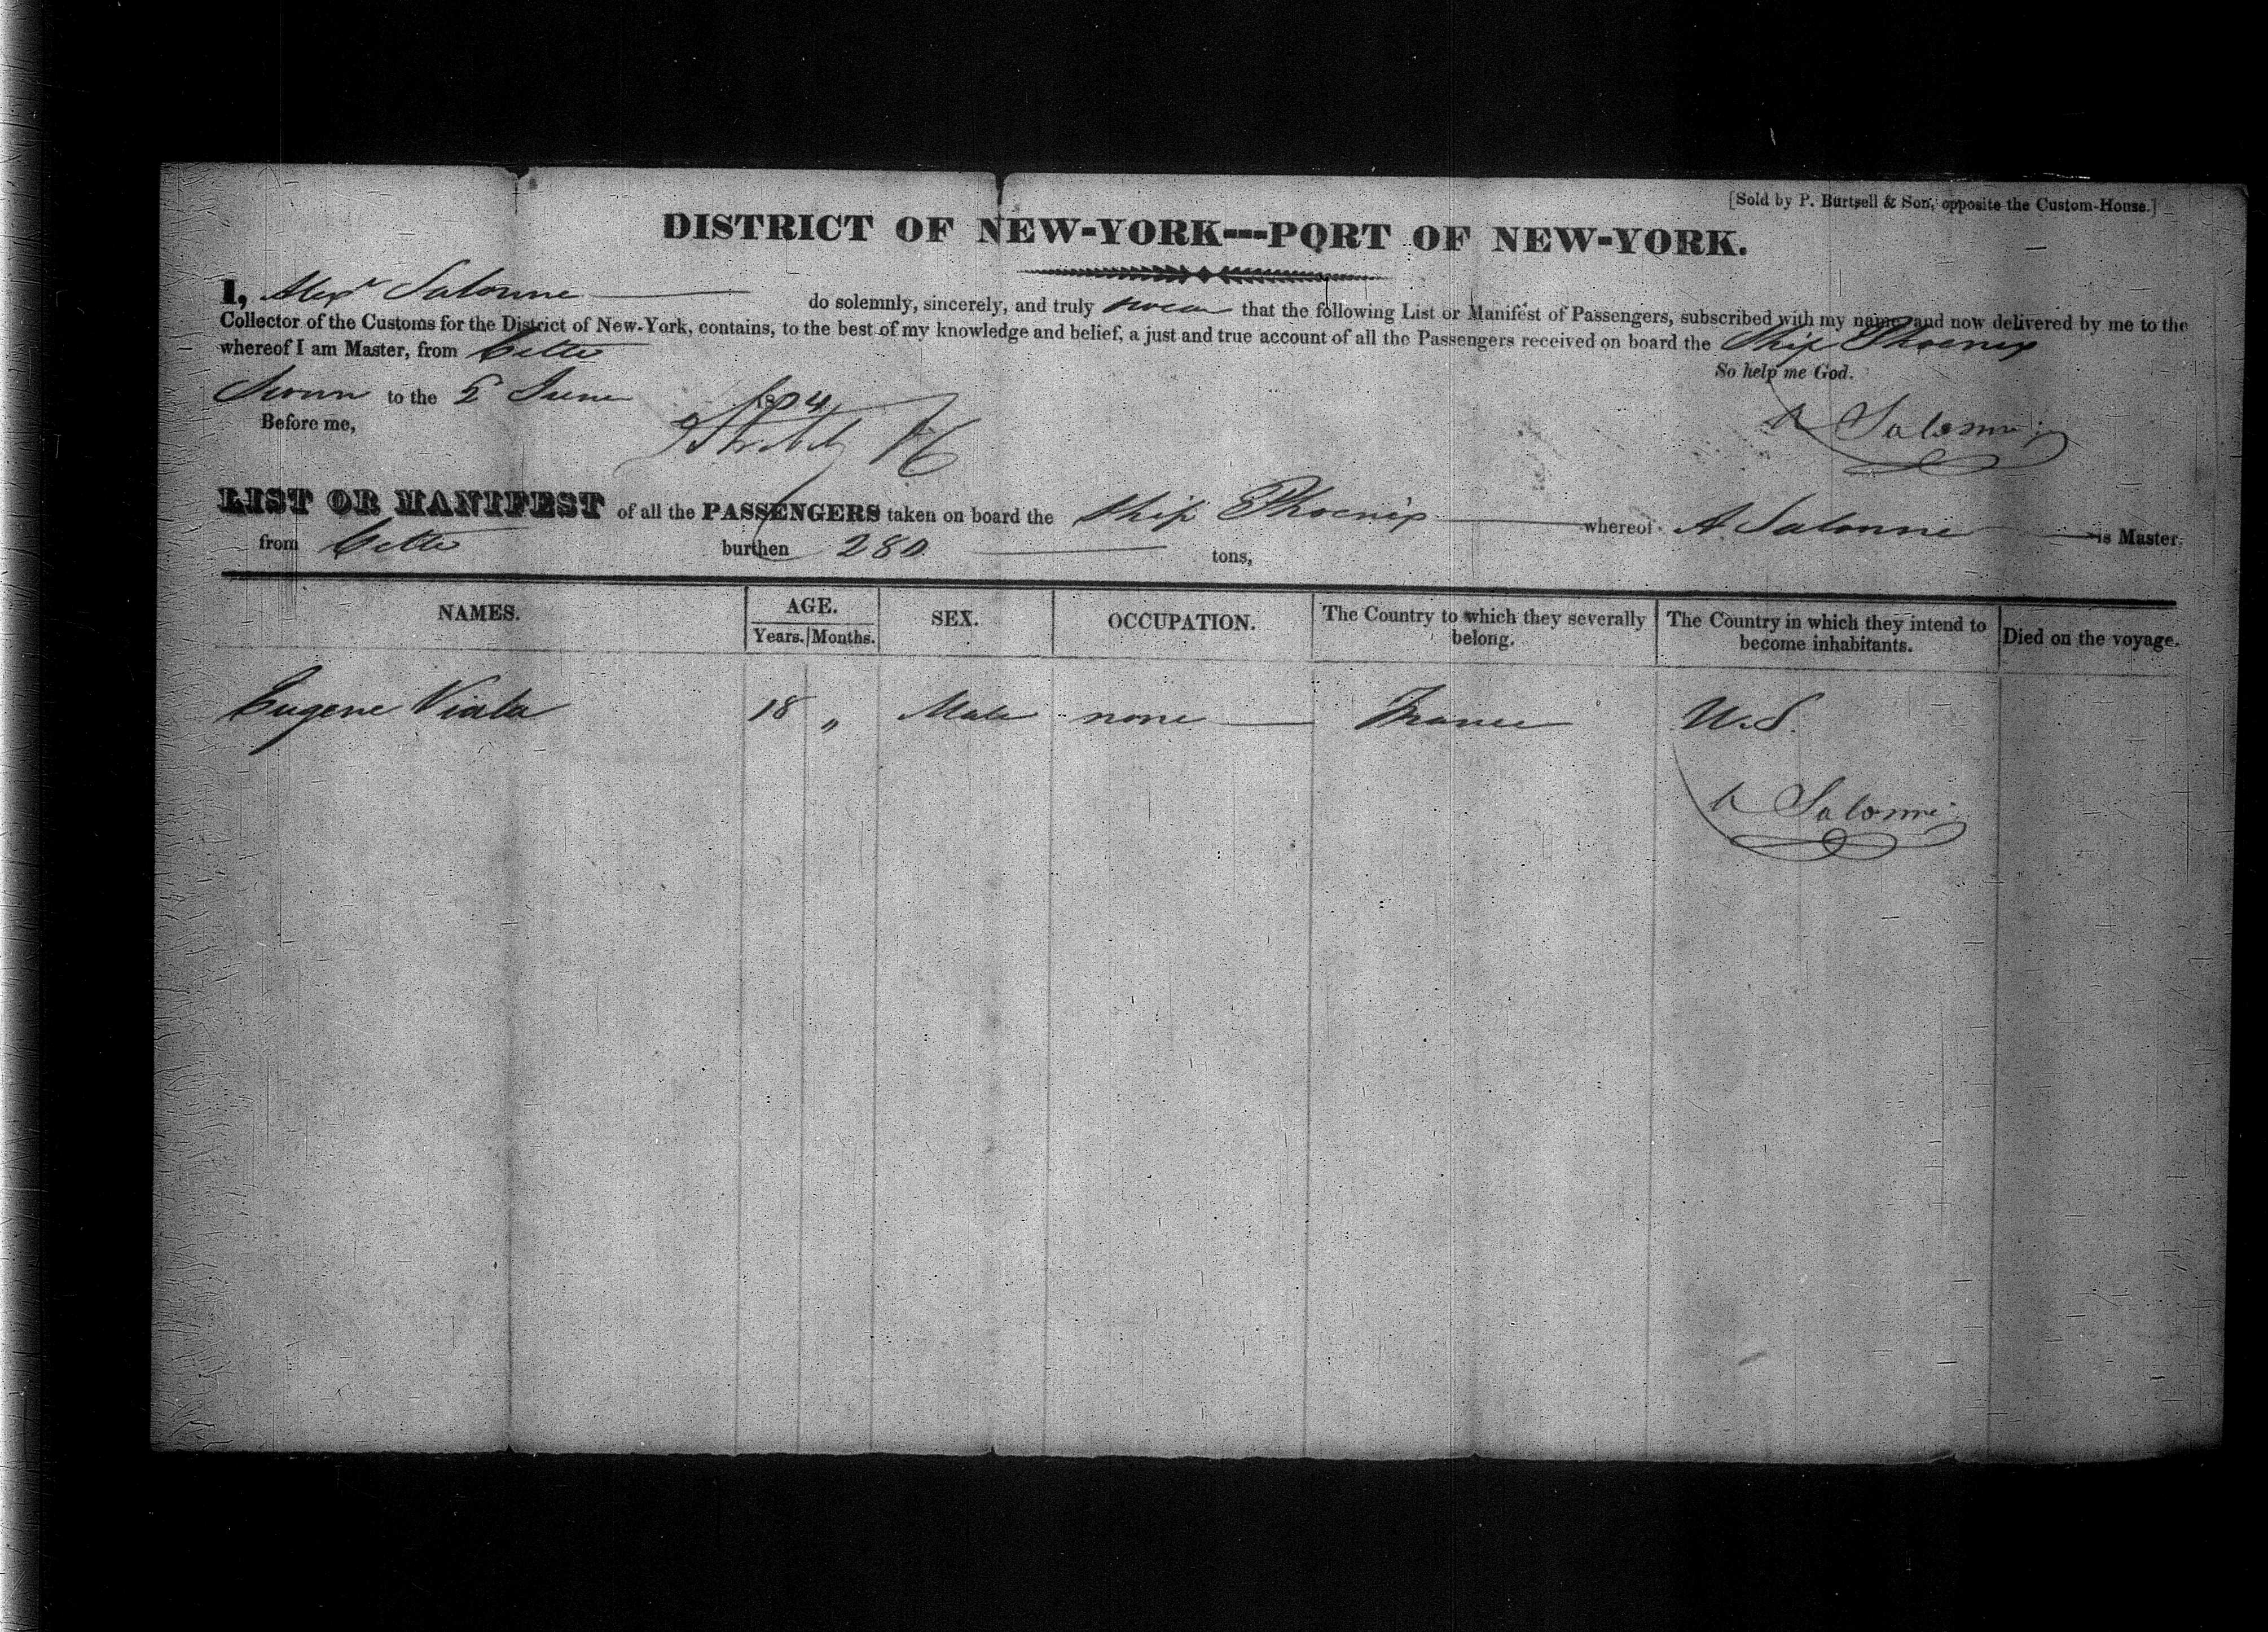 [Sold by P. Burtsell & Son, opposite the Custom-House.]
DISTRICT OF NEW-YORK---PORT OF NEW-YORK.
I, Alexr Salonne do solemnly, sincerely, and truly swear that the following List or Manifest of Passengers, subscribed with my name, and now delivered by me to the
Collector of the Customs for the District of New-York, contains, to the best of my knowledge and belief, a just and true account of all the Passengers received on board the Ship Phoenix
whereof I am Master, from Cette
So help me God.
Sworn to the 5 June 184
Before me,
A Salonne
LIST OR MANIFEST of all the PASSENGERS taken on board the Ship Phoenix whereof A. Salonne is Master.
from Cette burthen 280 tons,
NAMES. AGE. SEX. OCCUPATION. The Country to which they severally belong. The Country in which they intend to become inhabitants. Died on the voyage.
Years. Months.
Eugene Viala 18 „ Male none France U.S.
A Salonne